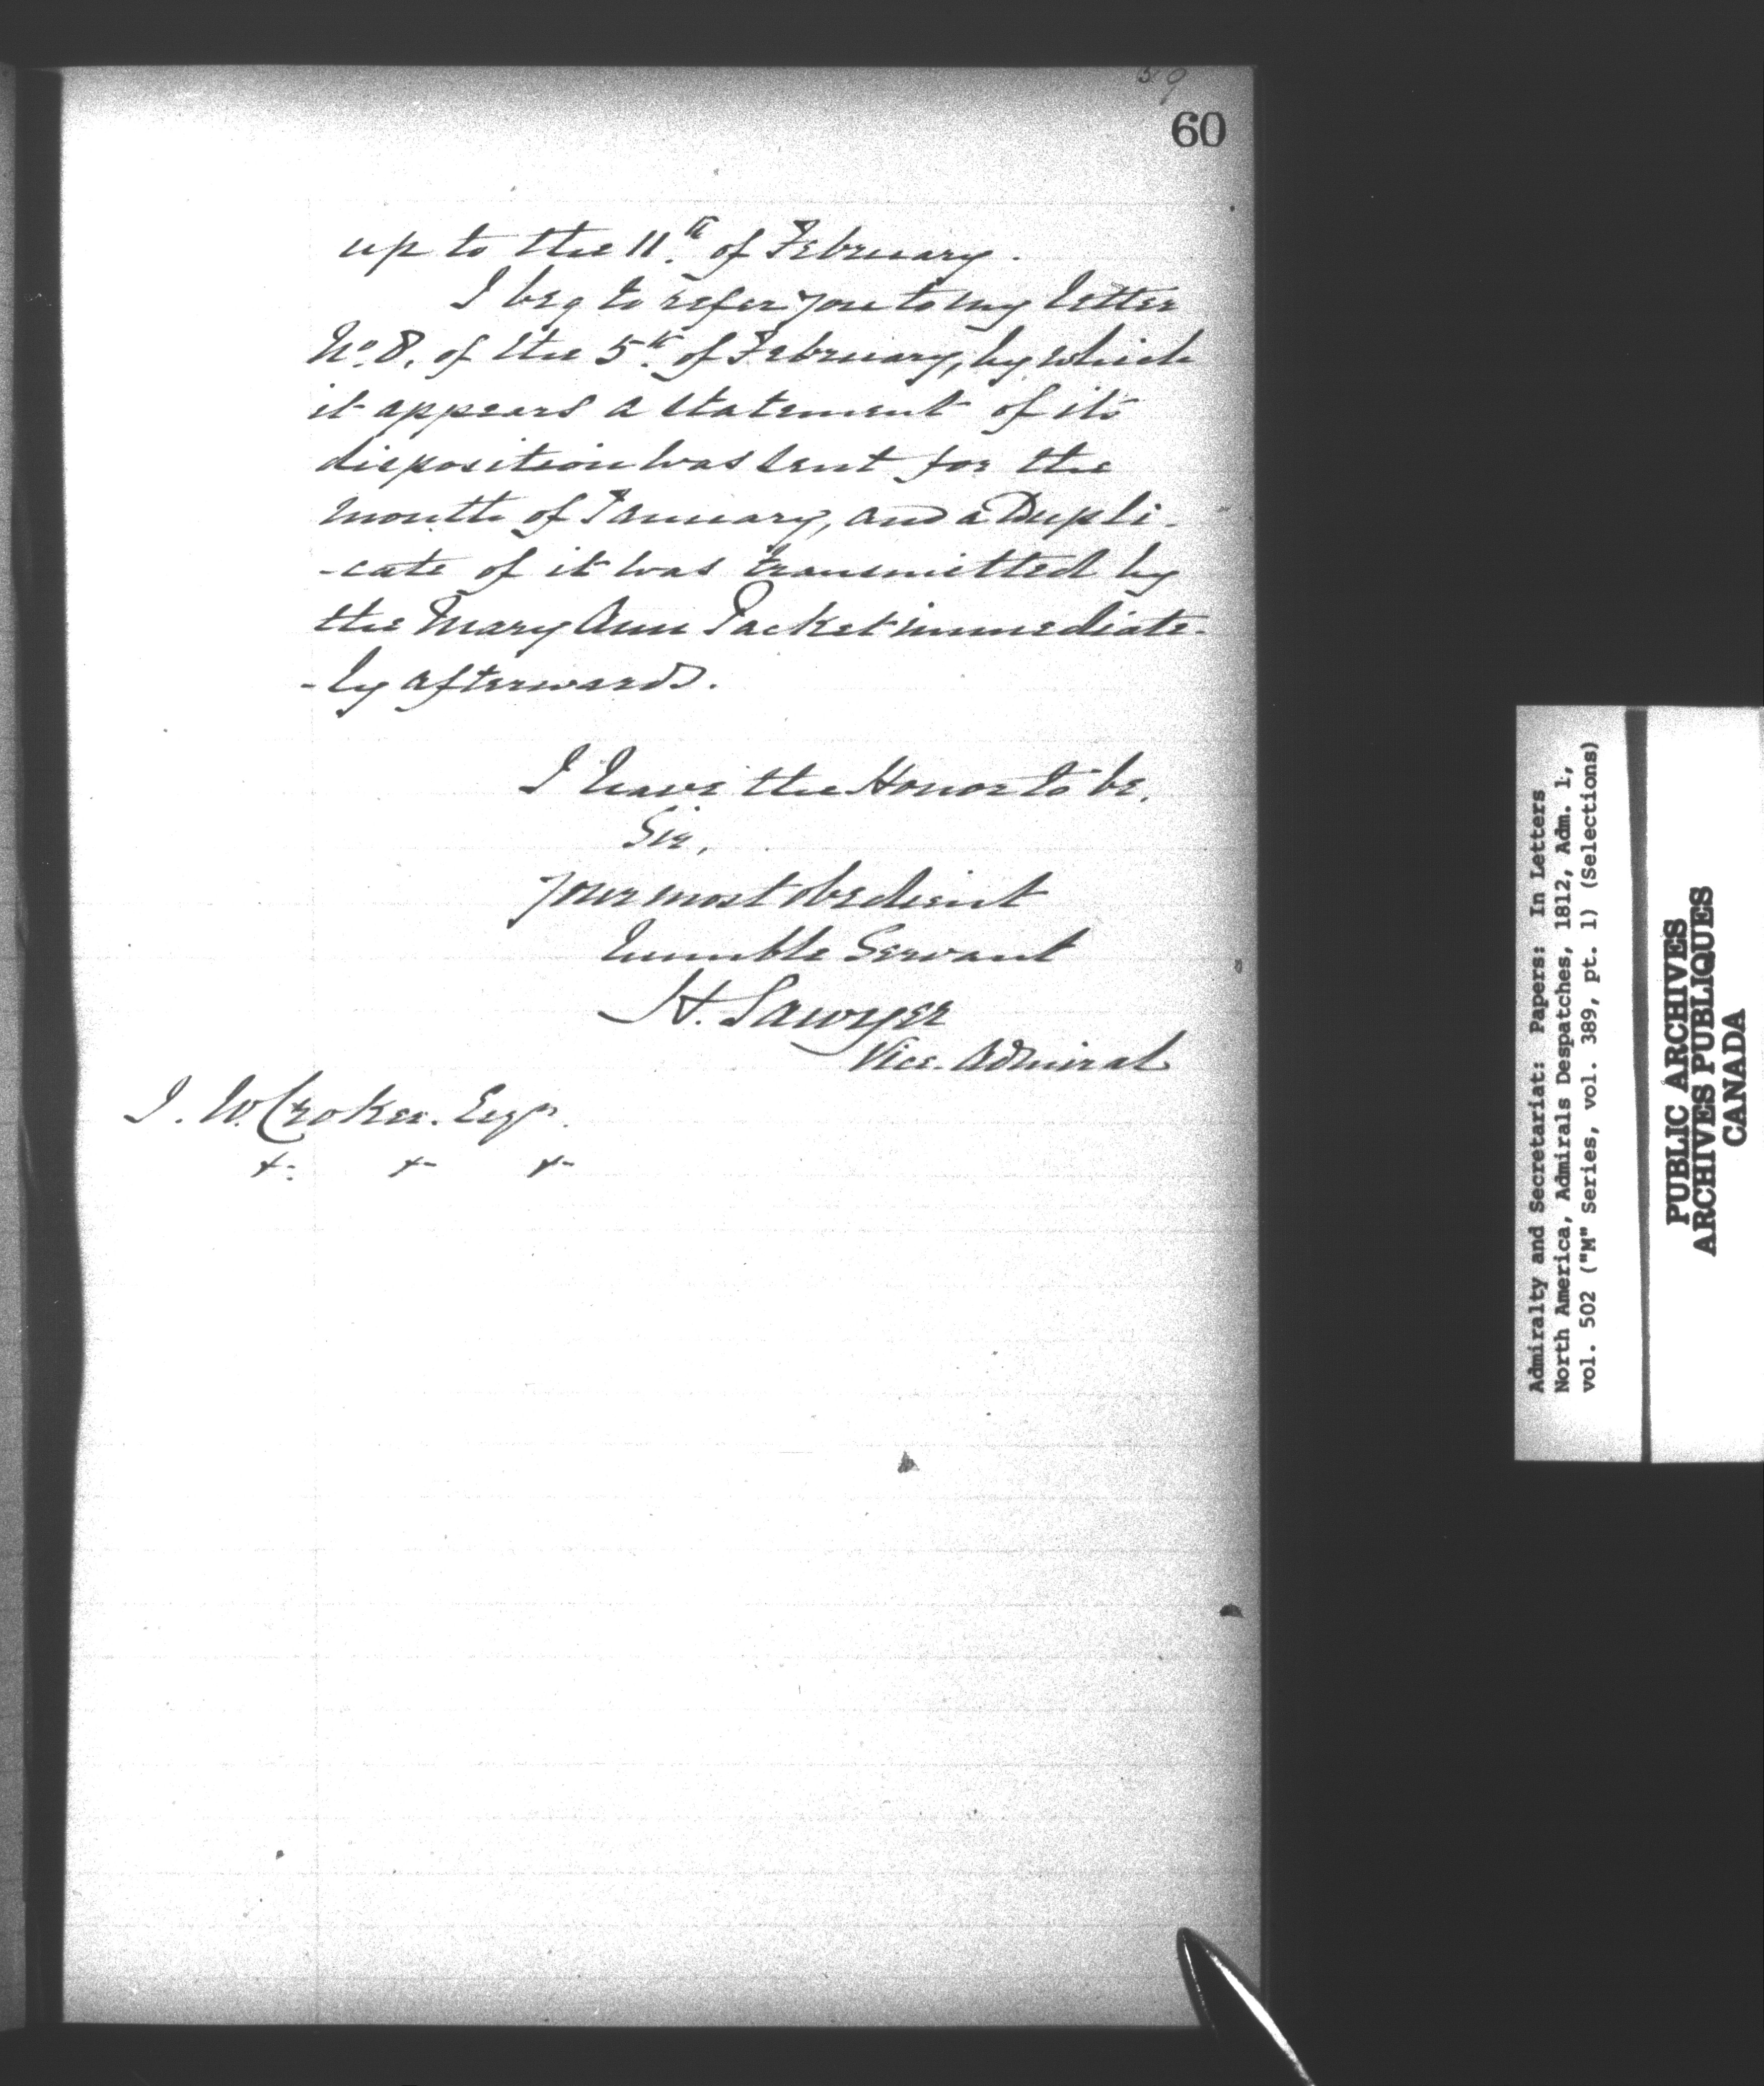 59
60
up to the 11th of February.
I beg to refer you to my letter
No. 8. of the 5th of February, by which
it appears a statement of its
disposition was sent for the
month of January, and a Dupli-
-cate of it was transmitted by
the Mary Ann Packet immediate-
-ly afterwards.
I have the Honor to be.
Sir,
your most obedient
humble Servant
H. Sawyer
Vice. Admiral
J. W. Croker. Esqr.
&c. &c. &c.
Admiralty and Secretariat: Papers: In Letters
North America, Admirals Despatches, 1812, Adm. 1,
vol. 502 ("M" Series, vol. 389, pt. 1) (Selections)
PUBLIC ARCHIVES
ARCHIVES PUBLIQUES
CANADA